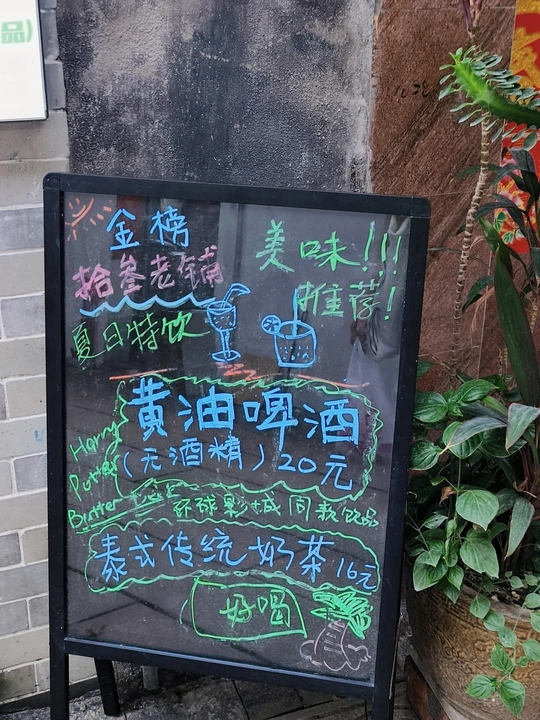 品)
金榜
拾叁老铺
夏日特饮
美味!!!
推荐!
黄油啤酒
(无酒精)20元
Harry
Putter
Butter Beer
环球影城同款饮品
泰式传统奶茶16元
好喝